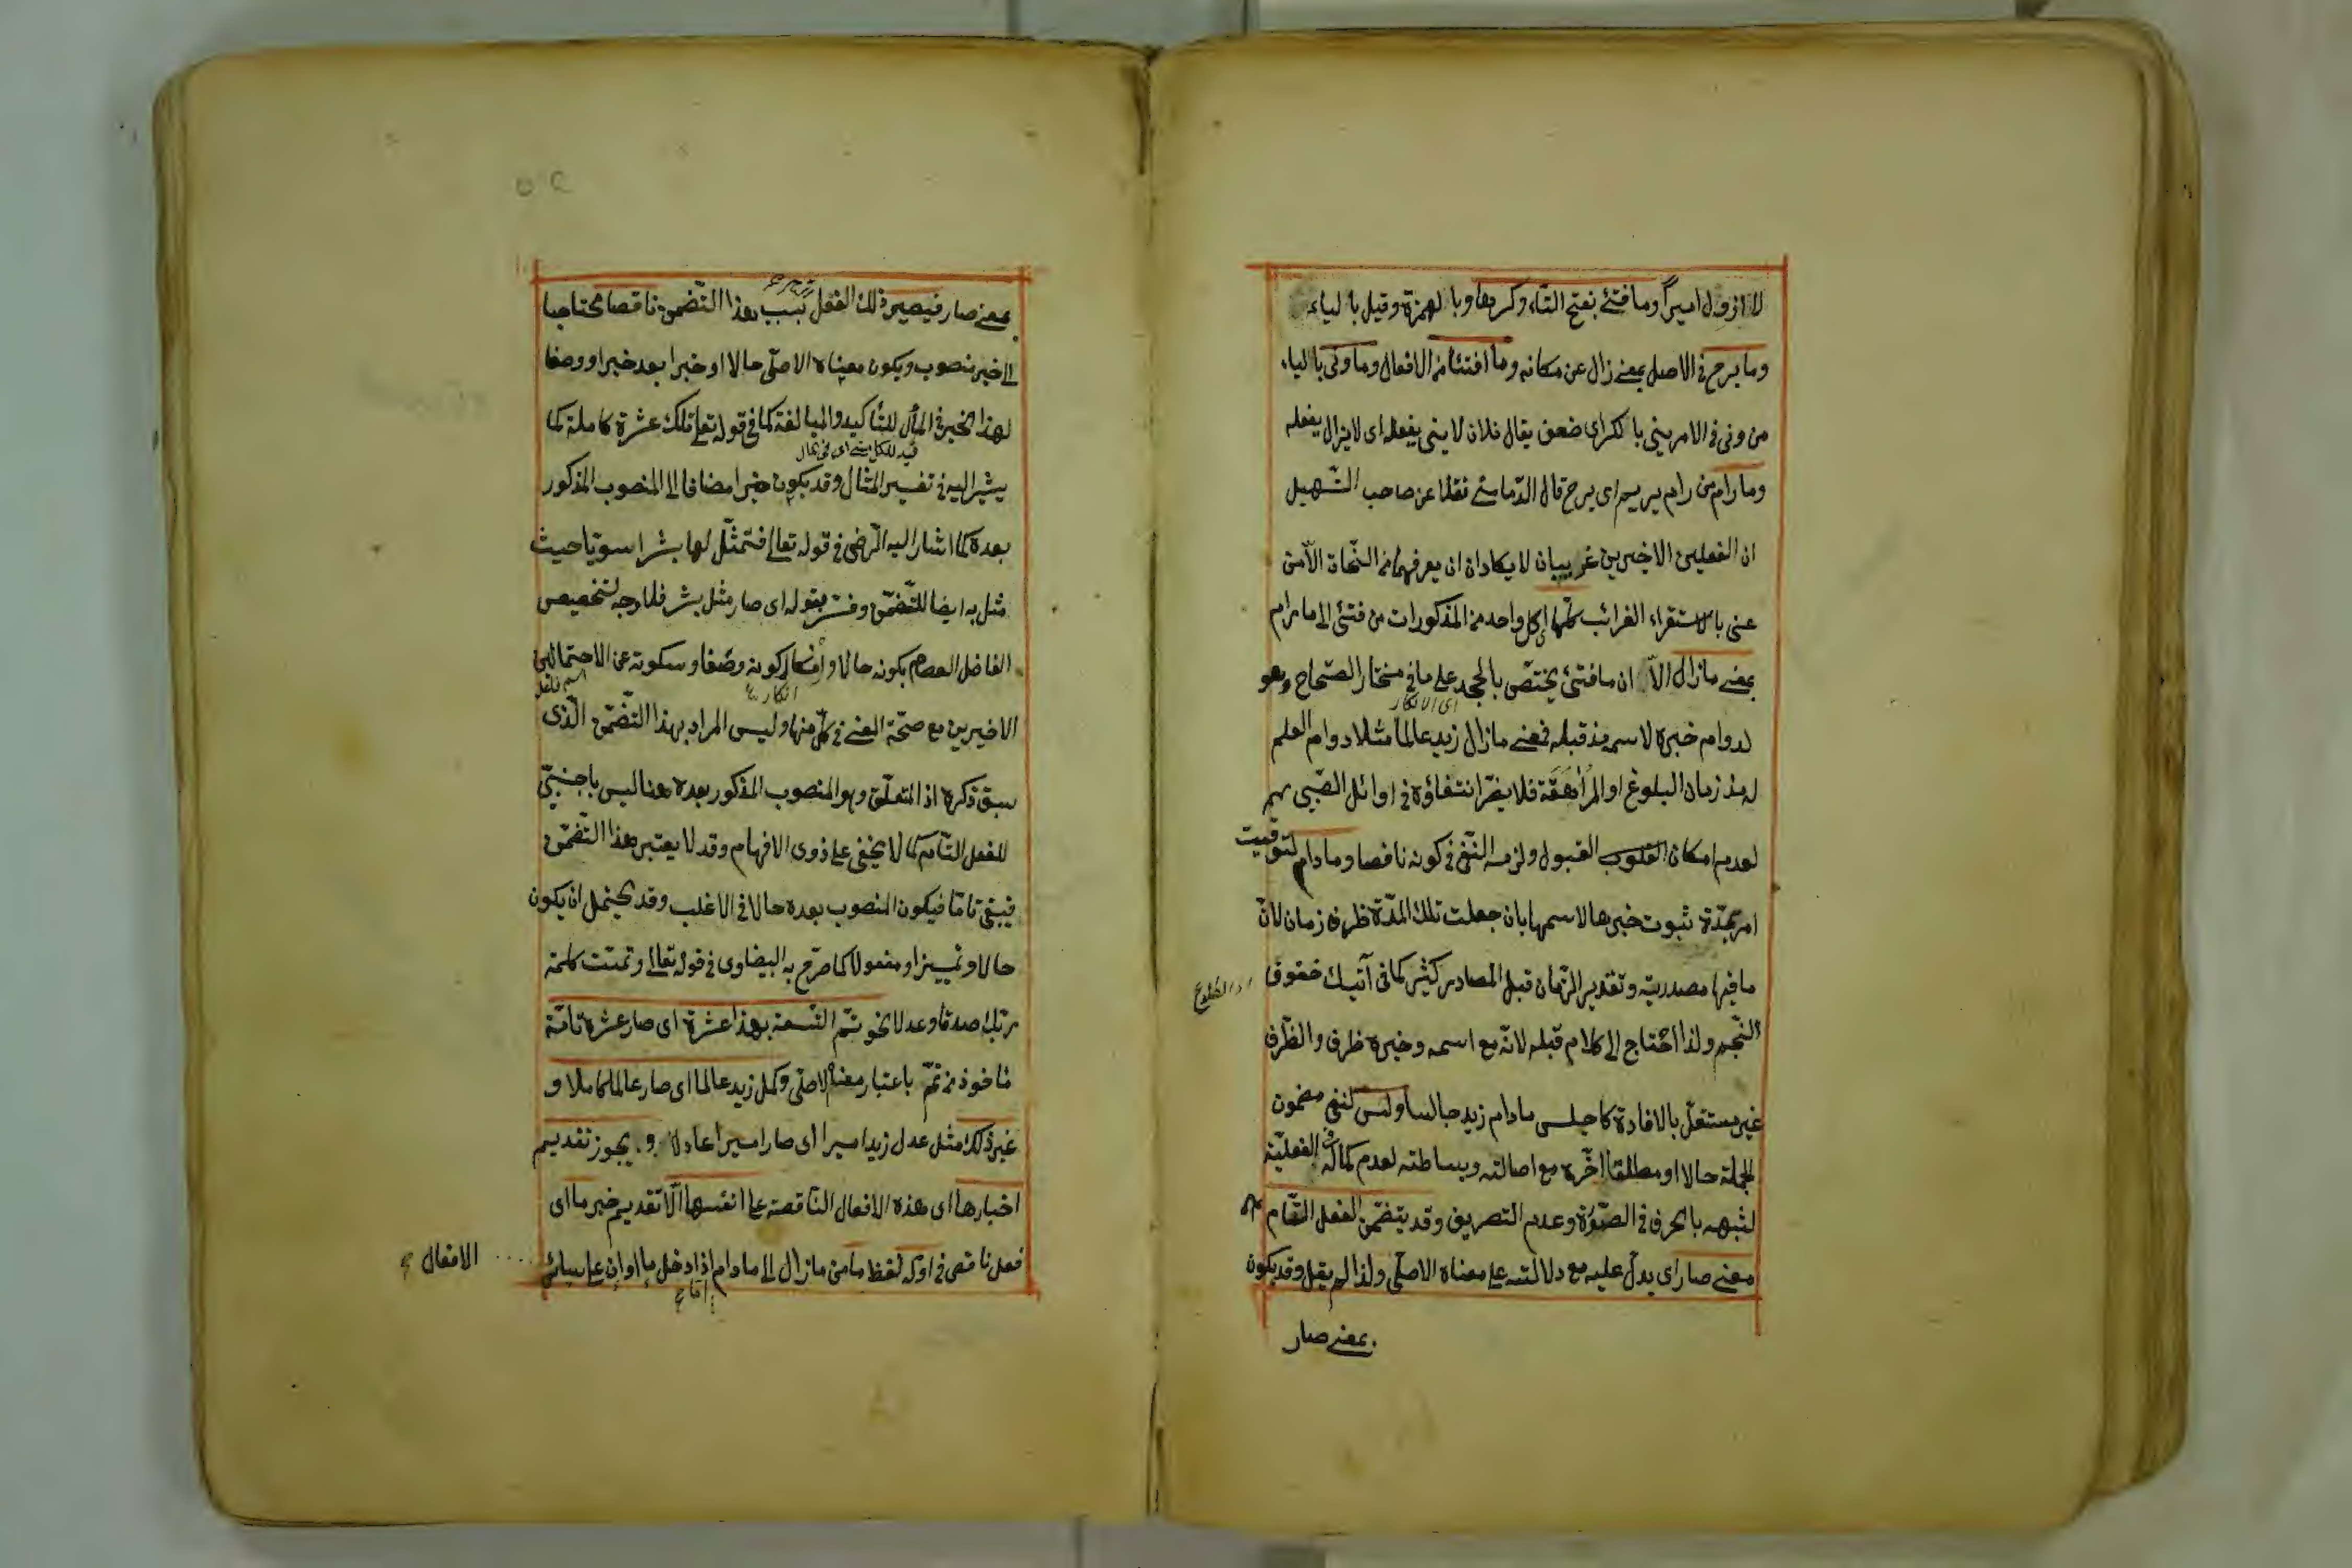 لا ازول اميرا وما فتئ بفتح التاء وكسرها وبالهمزة وقيل بالياء
وما برح في الاصل بمعنى زال عن مكانه وما افتئا من الافعال وما ونى بالياء
من ونى في الامر ينى بالكسر اى ضعف يقال فلان لا ينى يفعله اى لا يزال يفعله
وما رام من رام يريم اى يبرح قال الدمامينى نقلا عن صاحب التسهيل
ان الفعلين الاخيرين غريبان لا يكادان ان يعرفهما من النحاة الا من
عنى بالاستقراء الغرائب كلها اى كل واحد من المذكورات من فتئ الى ما رام
بمعنى ما زال الا ان ما فتئ يختص بالجحد على ما في مختار الصحاح وهو
اى الانكار
لدوام خبره لاسمه مذ قبله فمعنى ما زال زيد عالما مثلا دوام العلم
له مذ زمان البلوغ او المراهقة فلا يضر انتفاؤه في اوائل الصبى
لعدم امكان القبول ولزمه النفى في كونه ناقصا وما دام لتوقيت
امر بمدة ثبوت خبرها لاسمها بان جعلت تلك المدة ظرف زمان لان
ما فيها مصدرية وتقدير الزمان قبل المصادر كثير كما في آتيك خفوق
النجم ولذا احتاج الى كلام قبله لانه مع اسمه وخبره ظرف والظرف
غير مستقل بالافادة كاجلس ما دام زيد جالسا وليس لنفى مضمون
الجملة حالا او مطلقا اخره مع اصالته وبساطته لعدم كماله في الفعلية
لشبهه بالحرف في الصورة وعدم التصريف وقد يتضمن الفعل التام
معنى صار اى يدل عليه مع دلالته على معناه الاصلى ولذا لم يقل وقد يكون
بمعنى صار
بمعنى صار فيصير ذلك الفعل بسبب هذا التضمن ناقصا محتاجا
الى خبر منصوب ويكون معناه الاصلى حالا او خبرا بعد خبر او وصفا
لهذا الخبر في المأل للتأكيد والمبالغة كما في قوله تعالى تلك عشرة كاملة كما
يشير اليه في تفسير المثال وقد يكون خبرا مضافا الى المنصوب المذكور
بعده كما اشار اليه الرضى في قوله تعالى فتمثل لها بشرا سويا حيث
مثل به ايضا للتضمن وفسر بقوله اى صار مثل بشر فلا وجه لتخصيص
الفاضل العصام بكونه حالا وانكار كونه وصفا وسكوته عن الاحتمالين
انكاره
الاخيرين مع صحة المعنى في كل منها وليس المراد بهذا التضمن الذى
سبق ذكره اذ المتعلق وهو المنصوب المذكور بعده هنا ليس باجنبى
للفعل التام كما لا يخفى على ذوى الافهام وقد لا يعتبر هذا التضمن
فيبقى تاما فيكون المنصوب بعده حالا في الاغلب وقد يحتمل ان يكون
حالا وتمييزا ومفعولا كما صرح به البيضاوى في قوله تعالى وتمت كلمة
ربك صدقا وعدلا نحو تتم التسعة بهذا عشرة اى صار عشرة تامة
مأخوذ من تم باعتبار معناه الاصلى وكمل زيد عالما اى صار عالما كاملا و
غير ذلك مثل عدل زيد اميرا اى صار اميرا عادلا ويجوز تقديم
اخبارها اى هذه الافعال الناقصة على انفسها الا تقديم خبر ما اى
فعل ناقص في اوله لفظ ما من ما زال الى ما دام اذا دخل ما او ان على سائر
الافعال